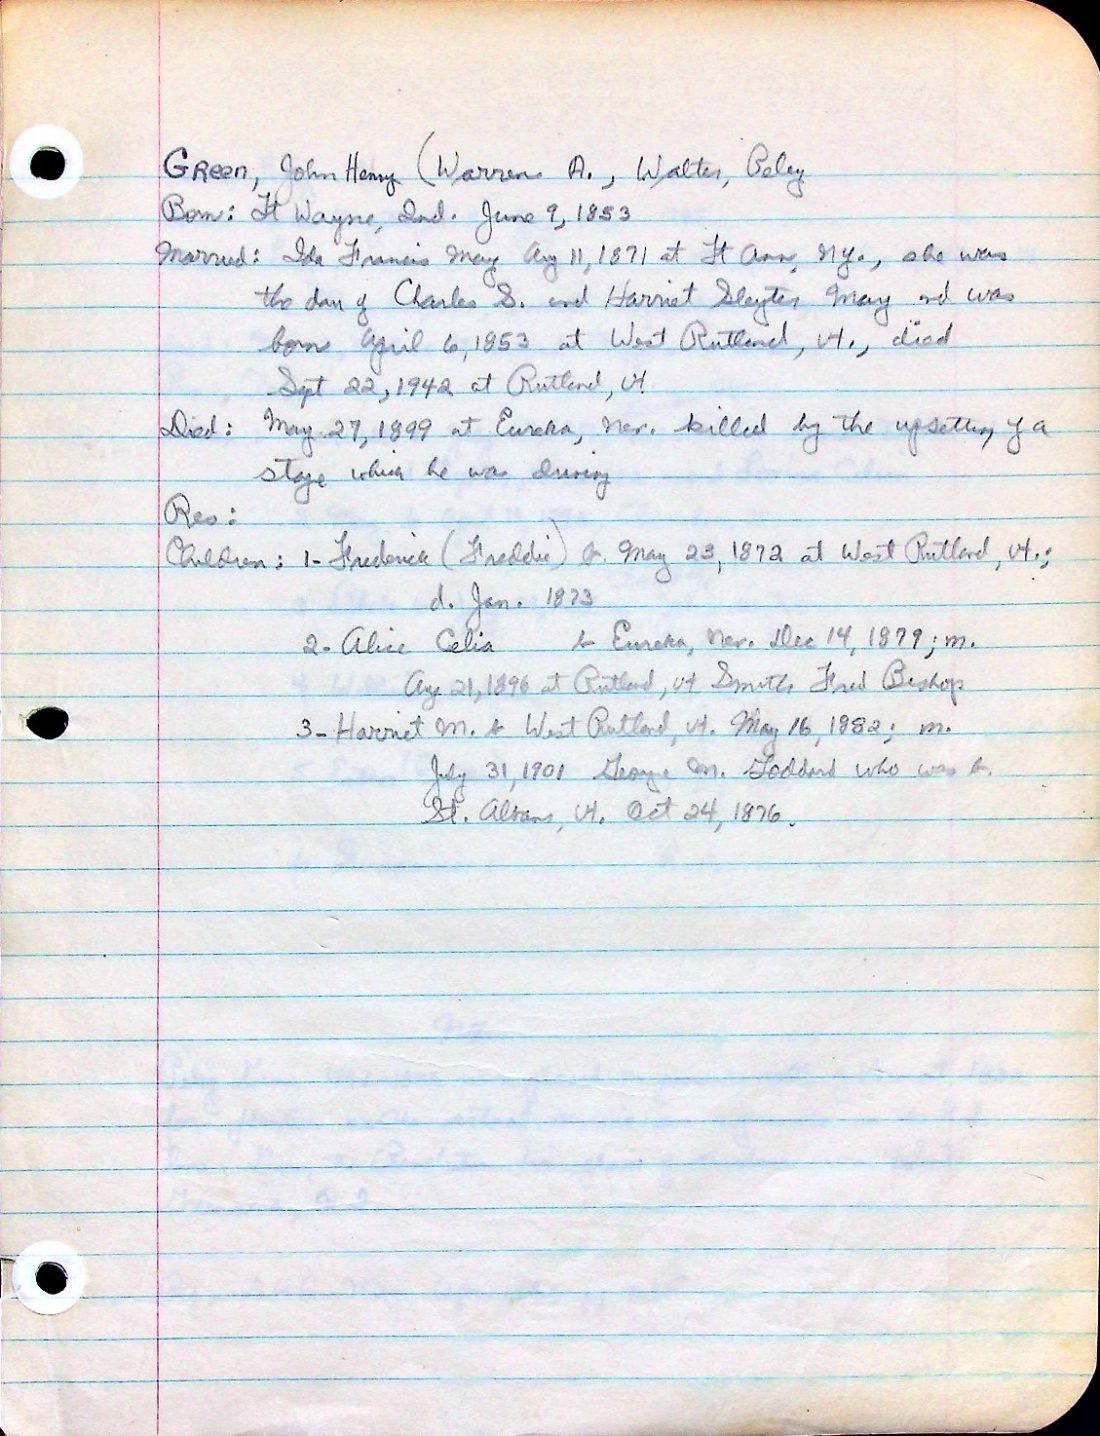 Green, John Henry (Warren A., Walter, Peley
Born: Ft Wayne, Ind. June 9, 1853
Married: Ida Francis May Aug 11, 1871 at Ft Ann, Ny., she was
the dau of Charles S. and Harriet Slayter May and was
born April 6, 1853 at West Rutland, Vt., died
Sept 22, 1942 at Rutland, Vt.
Died: May 27, 1899 at Eureka, Nev. killed by the upsetting of a
stage which he was driving
Res:
Children: 1- Frederick (Freddie) b. May 23, 1872 at West Rutland, Vt.;
d. Jan. 1873
2- Alice Celia b Eureka, Nev. Dec 14, 1879; m.
Aug 21, 1896 at Rutland, Vt Smith Fred Bishop
3- Harriet M. b West Rutland, Vt. May 16, 1882; m.
July 31, 1901 George M. Goddard who was b.
St. Albans, Vt. Oct 24, 1876.